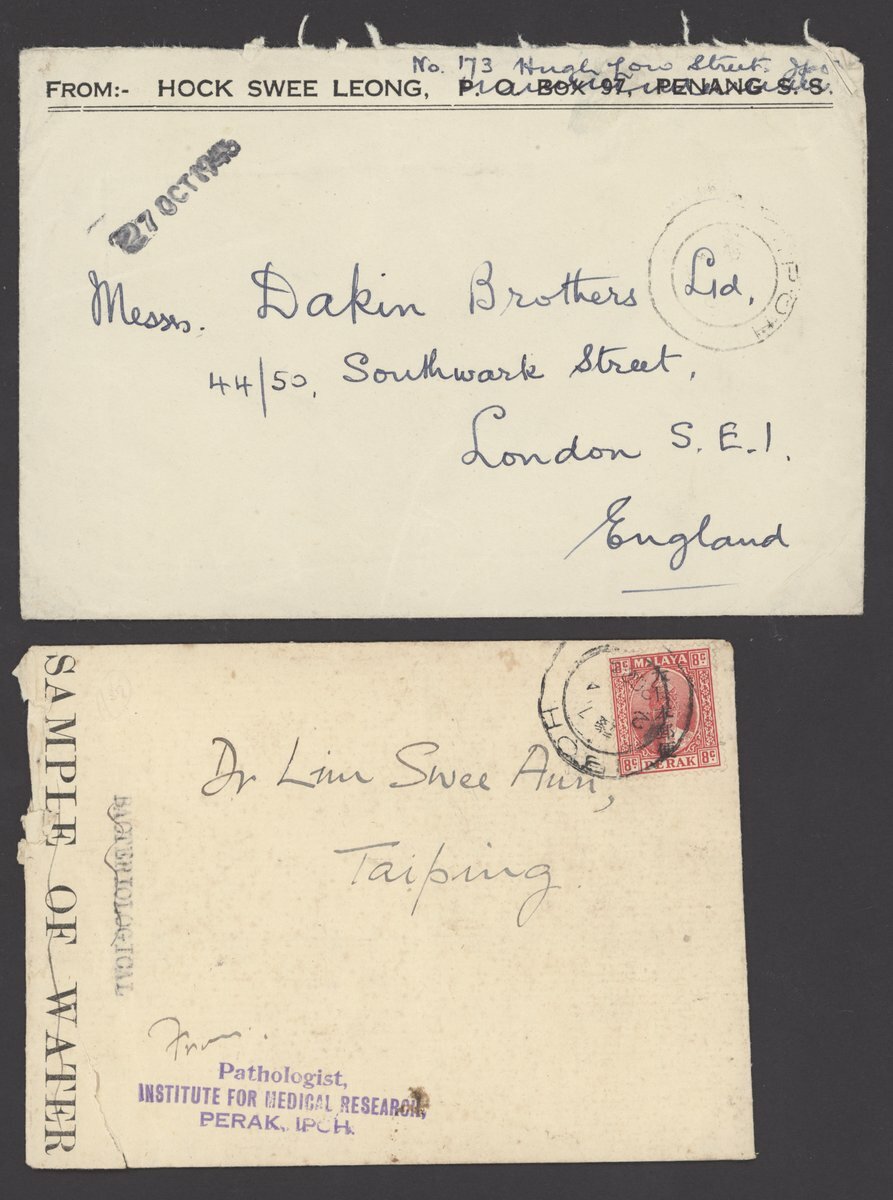 No. 173 Hugh Low Street. Ipoh
FROM:- HOCK SWEE LEONG, P. O. BOX 97, PENANG S. S.
27 OCT 1945
IPOH
Messrs. Dakin Brothers Ltd,
44/50, Southwark Street,
London S.E.1.
England
MALAYA
8c 8c
8c PERAK 8c
IPOH
Dr Lim Swee Aun,
Taiping.
SAMPLE OF WATER
BACTERIOLOGICAL
From.
Pathologist,
INSTITUTE FOR MEDICAL RESEARCH,
PERAK, IPOH.